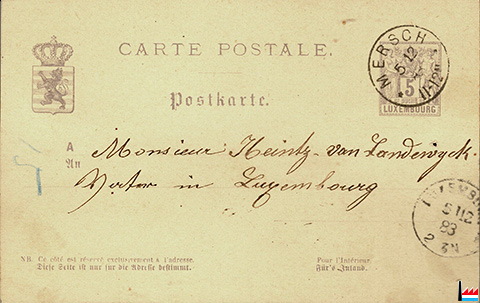 CARTE POSTALE.
Postkarte.
MERSCH
5 12
11-12
5
LUXEMBOURG
A
An
Monsieur Heintz-van Landewyck.
Vater in Luxembourg
5 12
83
NB. Ce côté est réservé exclusivement à l'adresse.
Diese Seite ist nur für die Adresse bestimmt.
Pour l'Intérieur.
Für's Inland.